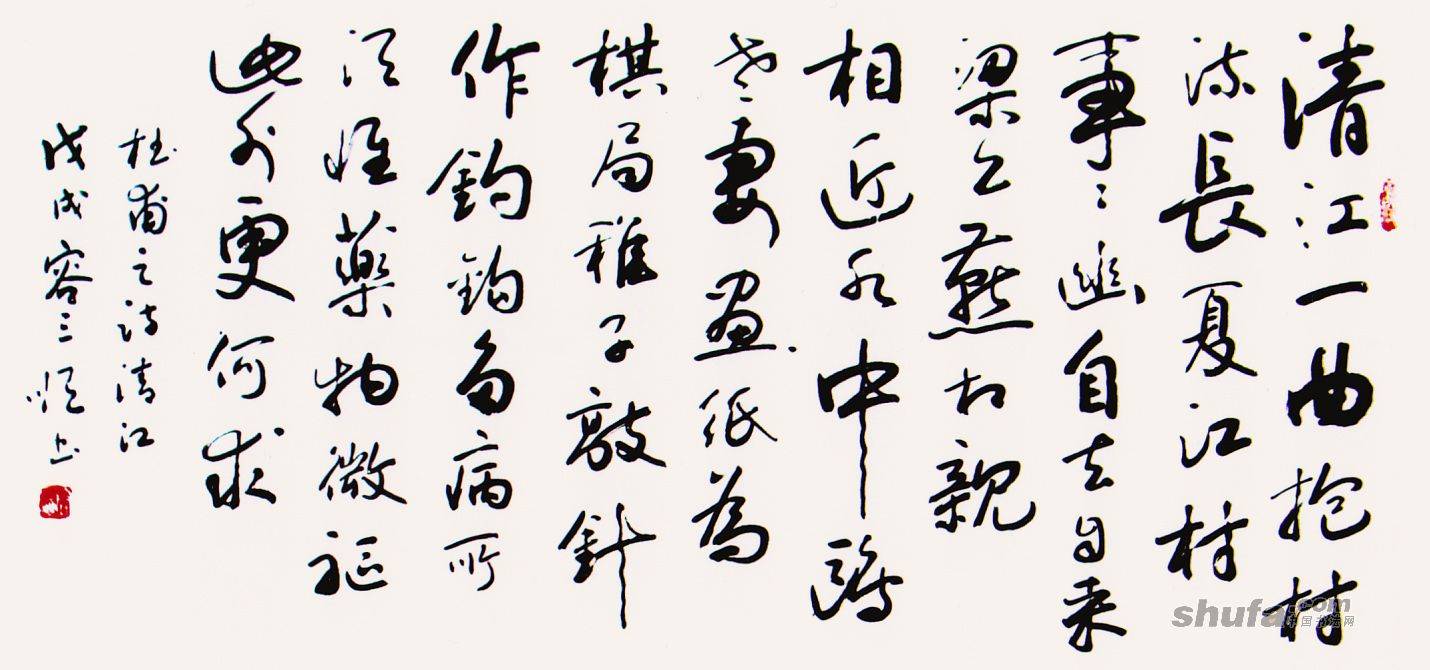 清江一曲抱村
流長夏江村
事〻幽自去自来
梁上燕相親
相近水中鷗
老妻畫紙為
棋局稚子敲針
作釣鈎多病所
須惟藥物微軀
此外更何求
杜甫之诗清江
戊戌容三
shufa.com
中国书法网